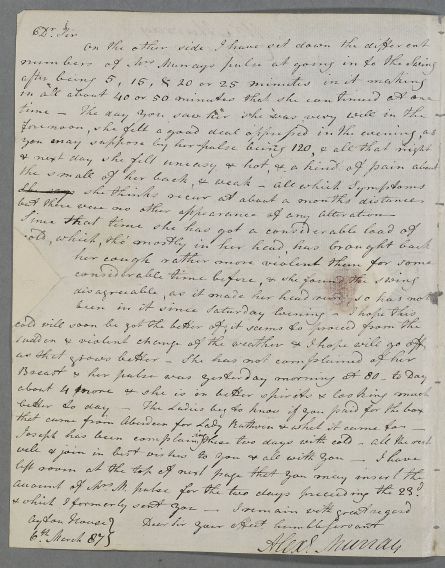 Dr Sir
On the other side I have set down the different
numbers of Mrs Murrays pulse at going in to the Swing
after being 5, 15, & 20 or 25 minutes in it making
in all about 40 or 50 minutes that she continued at one
time — The day you saw her she was very well in the
forenoon, she felt a good deal oppressed in the evening, as
you may suppose by her pulse being 120, & all that night
& next day she felt uneasy & hot & a kind of pain about
the small of her back, & weak — all which Symptoms
she thinks occur at about a months distance
but there was no other appearance of any alteration
Since that time she has got a considerable load of
cold, which, tho' mostly in her head, has brought back
her cough rather more violent than for some
considerable time before, & she found the Swing
disagreeable, as it made her head so has not
been in it since Saturday Evening I hope this
cold will soon be got the better of, it seems to proceed from the
sudden & violent change of the weather & I hope will go off
as that grows better — She has not complained of her
Breast & her pulse was yesterday morning at 80 — to Day
about 4 more & she is in better spirits & looking much
better to day — The Ladies beg to know if you paid for the box
that came from Aberdeen for Lady Ruthven & what it came to —
Joseph has been complaining these two days with cold — all the rest
well & join in best wishes to you & all with you — I have
left room at the top of next page that you may insert the
account of Mrs M pulse for the two days preceding the 23d
& which I formerly sent you — I remain with great regard
Dear Sir your obedt humble servant
Ayton House
6th March
Alexr Murray